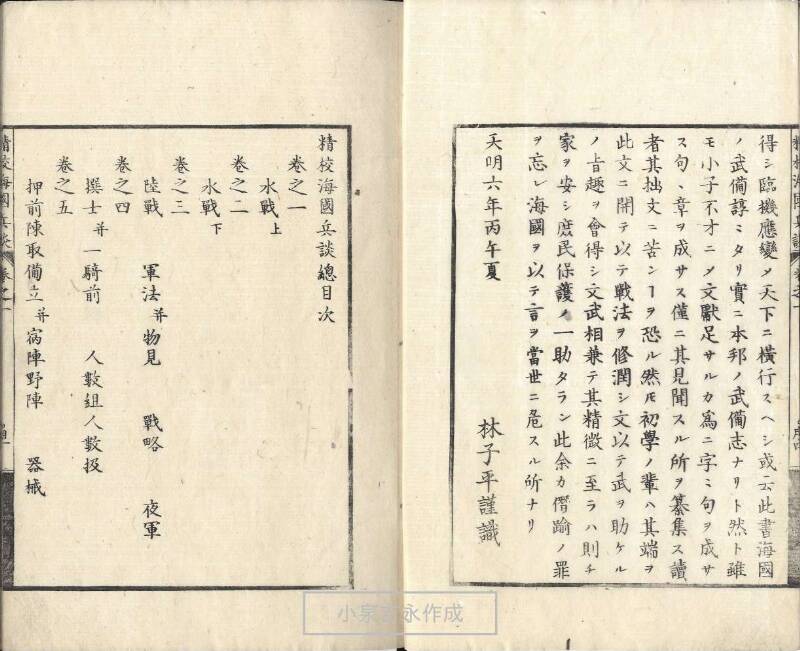 得シ臨機應變メ天下ニ橫行スヘシ或云此書海國
ノ武備諄ミタリ實ニ本邦ノ武備志ナリト然ト雖
モ小子不才ニメ文獻足サルカ為ニ字ミ句ヲ成サ
ス句、章ヲ成サス僅ニ其見聞スル所ヲ纂集ス讀
者其拙文ニ苦ンヿヲ恐ル然ㇳモ初學ノ輩ハ其端ヲ
此文ニ開テ以テ戰法ヲ修潤シ文以テ武ヲ助ケル
ノ旨趣ヲ會得シ文武相兼テ其精微ニ至ラハ則チ
家ヲ安シ庶民保護ノ一助タラン此余カ僭踰ノ罪
ヲ忘レ海國ヲ以テ言ヲ當世ニ危スル所ナリ
天明六年丙午夏
林子平謹識
精校海國兵談總目次
卷之一
水戰上
卷之二
水戰下
卷之三
陸戰 軍法并物見 戰略 夜軍
卷之四
撰士并一騎前 人數組人數扱
卷之五
押前陳取備立并宿陣野陣 器械
精校海國兵談 卷之一
小泉吉永作成